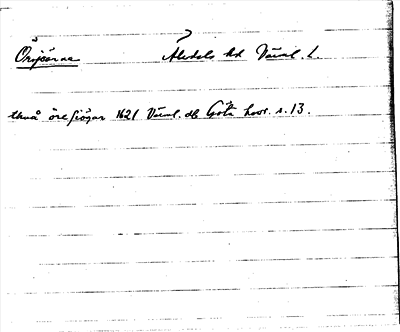 Örsjöarna Älvdals hd Värml. L.
två öre siögar 1621 Värml. o. Göta hovr. s. 13.